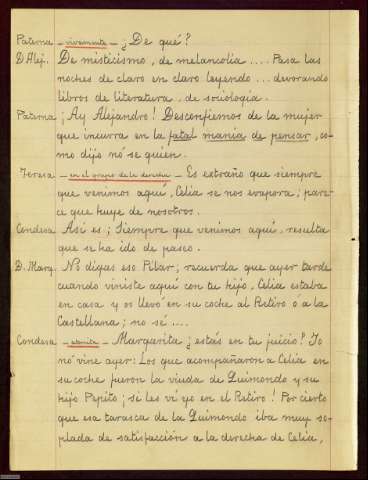 Paterna - vivamente - ¿De qué?
D. Alej. De misticismo, de melancolía .... Pasa las
noches de claro en claro leyendo ... devorando
libros de literatura, de sociología.
Paterna ¡Ay Alejandro! Desconfiemos de la mujer
que incurra en la fatal manía de pensar, co-
mo dijo no sé quien.
Teresa - en el grupo de la derecha - Es extraño que siempre
que venimos aquí, Celia se nos evapora; pare-
ce que huye de nosotros.
Condesa Así es; Siempre que venimos aquí, resulta
que se ha ido de paseo.
D. Marg. No digas eso Pilar; recuerda que ayer tarde
cuando viniste aquí con tu hijo, Celia estaba
en casa y os llevó en su coche al Retiro ó a la
Castellana; no sé ....
Condesa - atónita - Margarita ¿estás en tu juicio? Yo
no vine ayer: Los que acompañaron a Celia en
su coche fueron la viuda de Quimondo y su
hijo Pepito; si les vi yo en el Retiro! Por cierto
que esa tarasca de la Quimondo iba muy so-
plada de satisfacción a la derecha de Celia,